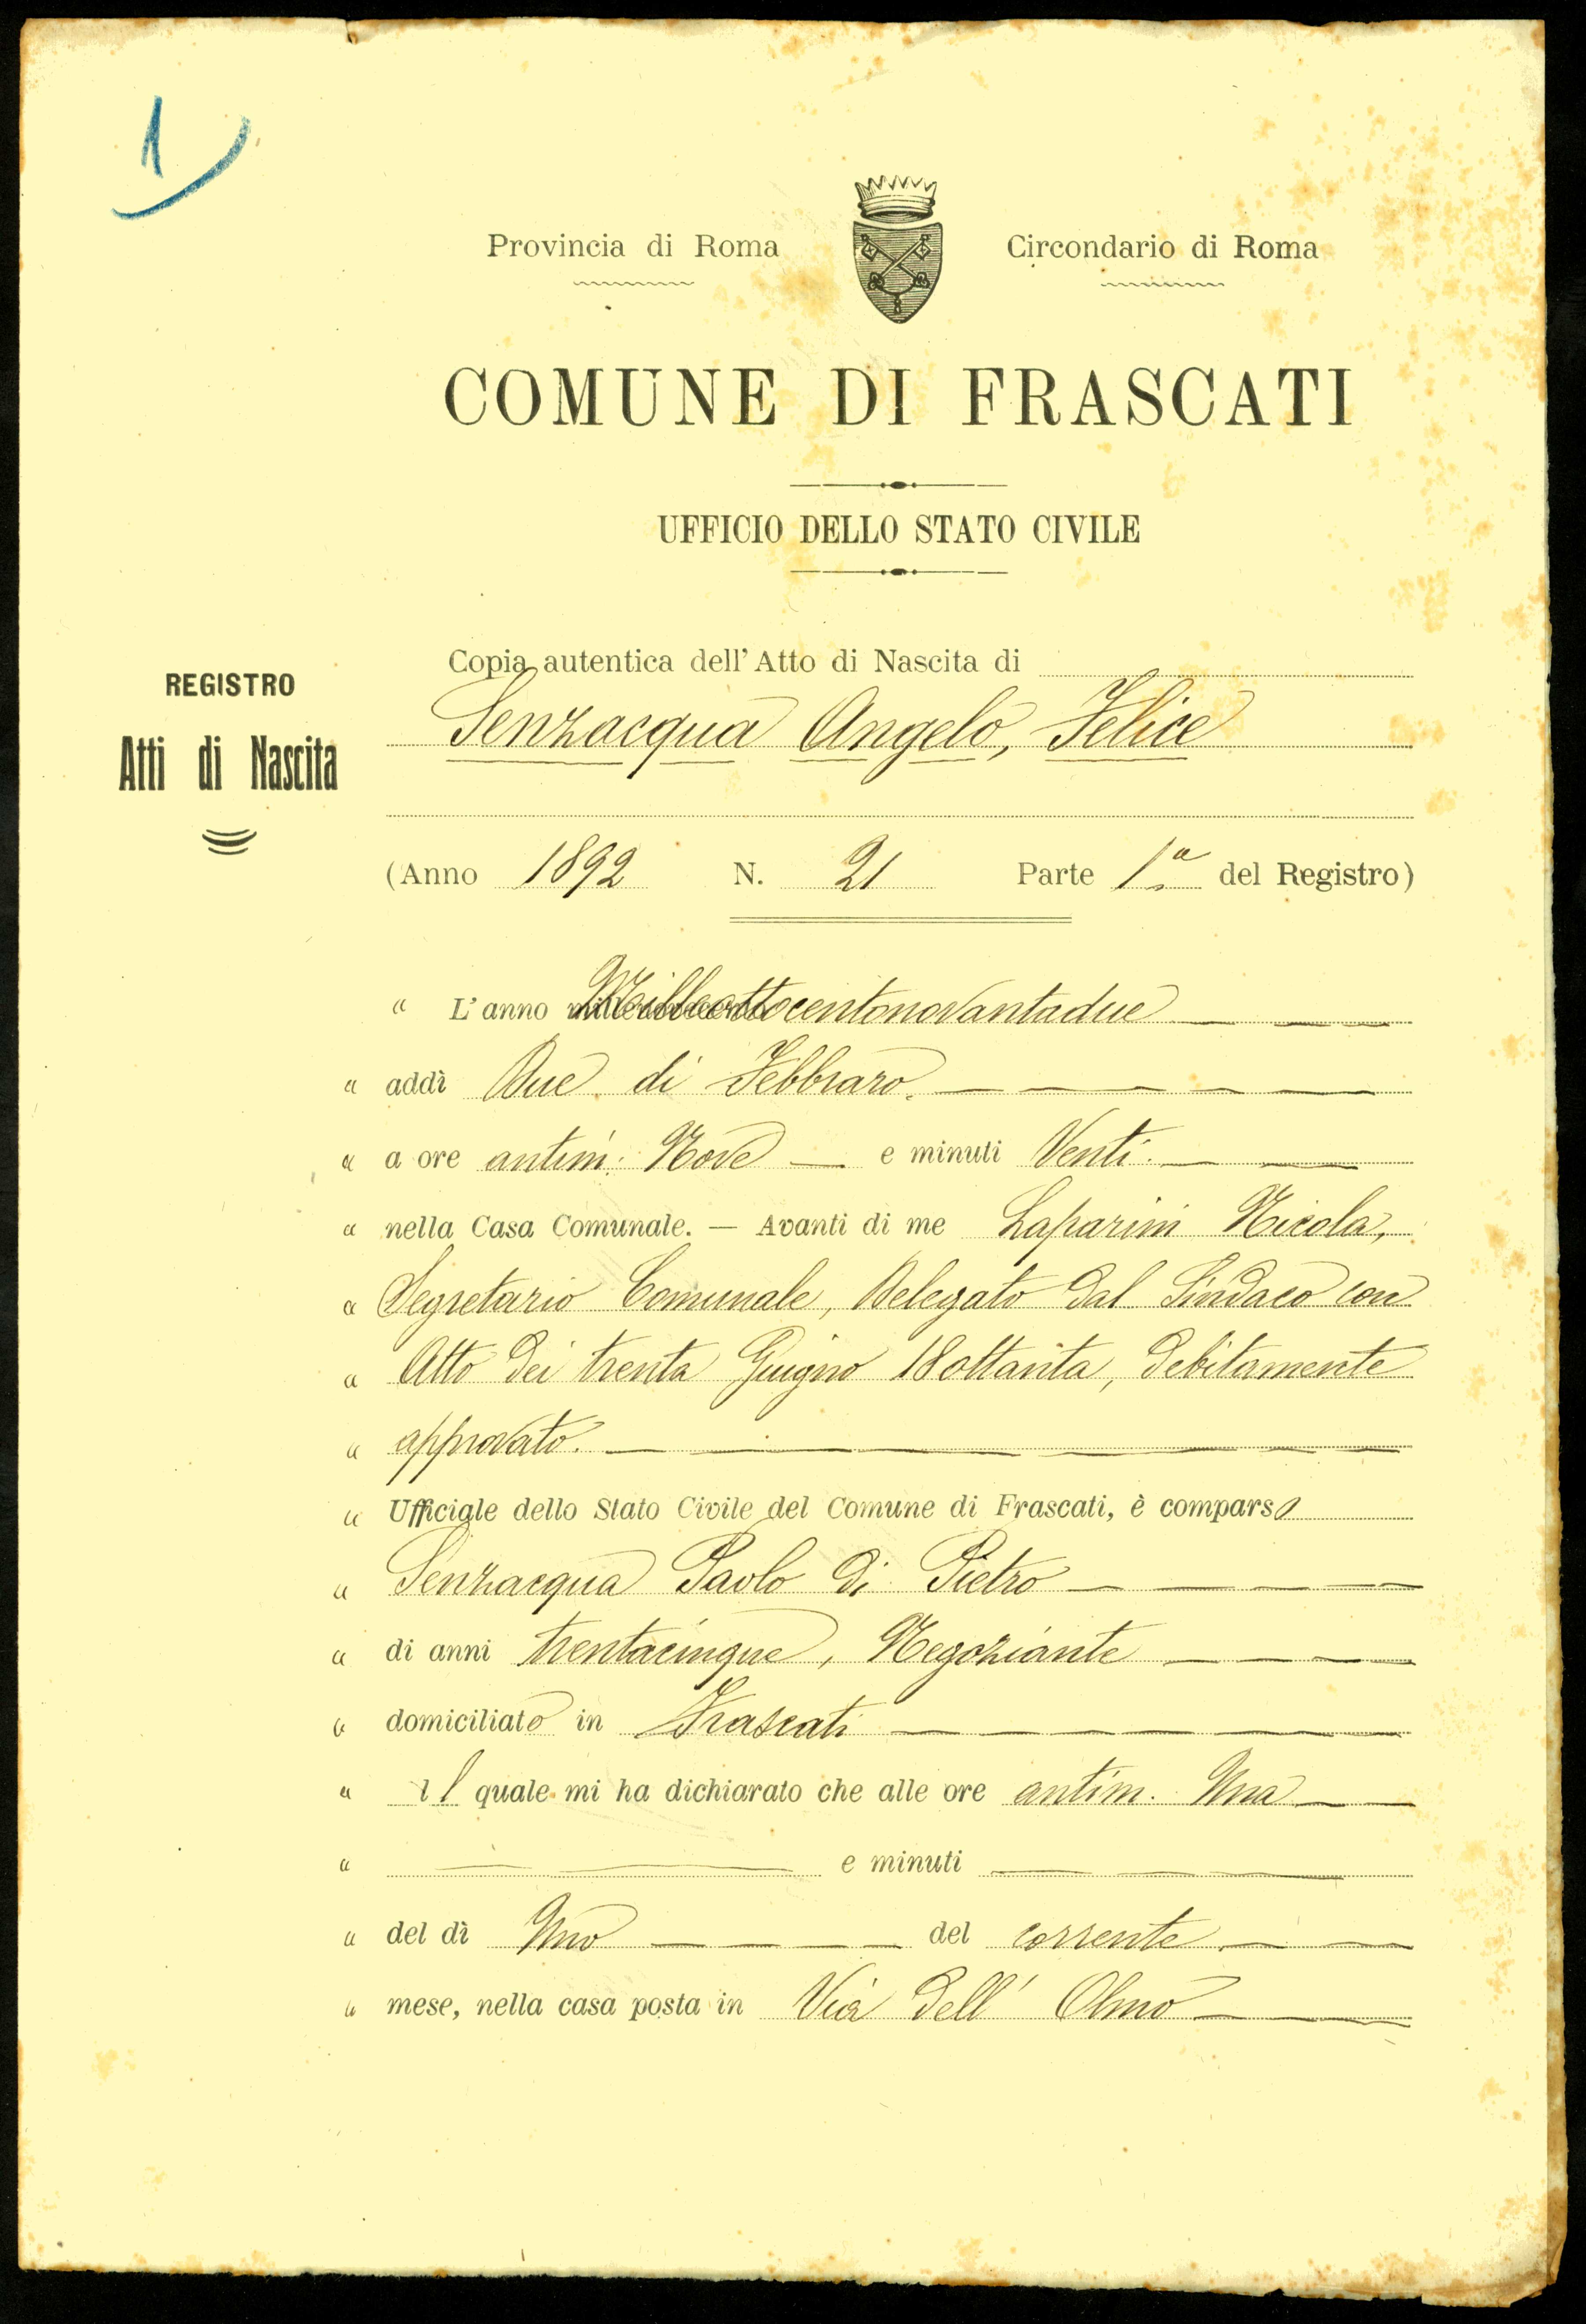 1
Provincia di Roma Circondario di Roma
COMUNE DI FRASCATI
UFFICIO DELLO STATO CIVILE
REGISTRO
Atti di Nascita
Copia autentica dell'Atto di Nascita di
Senzacqua Angelo, Felice
(Anno 1892 N. 21 Parte 1a del Registro)
" L'anno Milleottocentonovantadue
" addì Due di Febbraro.
" a ore antim. Nove — e minuti Venti.
" nella Casa Comunale. — Avanti di me Laparini Nicola,
" Segretario Comunale, Delegato dal Sindaco con
" Atto dei trenta Giugno 18ottanta, debitamente
" approvato.
" Ufficiale dello Stato Civile del Comune di Frascati, è comparso
" Senzacqua Paolo di Pietro
" di anni trentacinque, Negoziante
" domiciliato in Frascati
" il quale mi ha dichiarato che alle ore antim. Una
" e minuti
" del dì Uno del corrente
" mese, nella casa posta in Via dell' Olmo